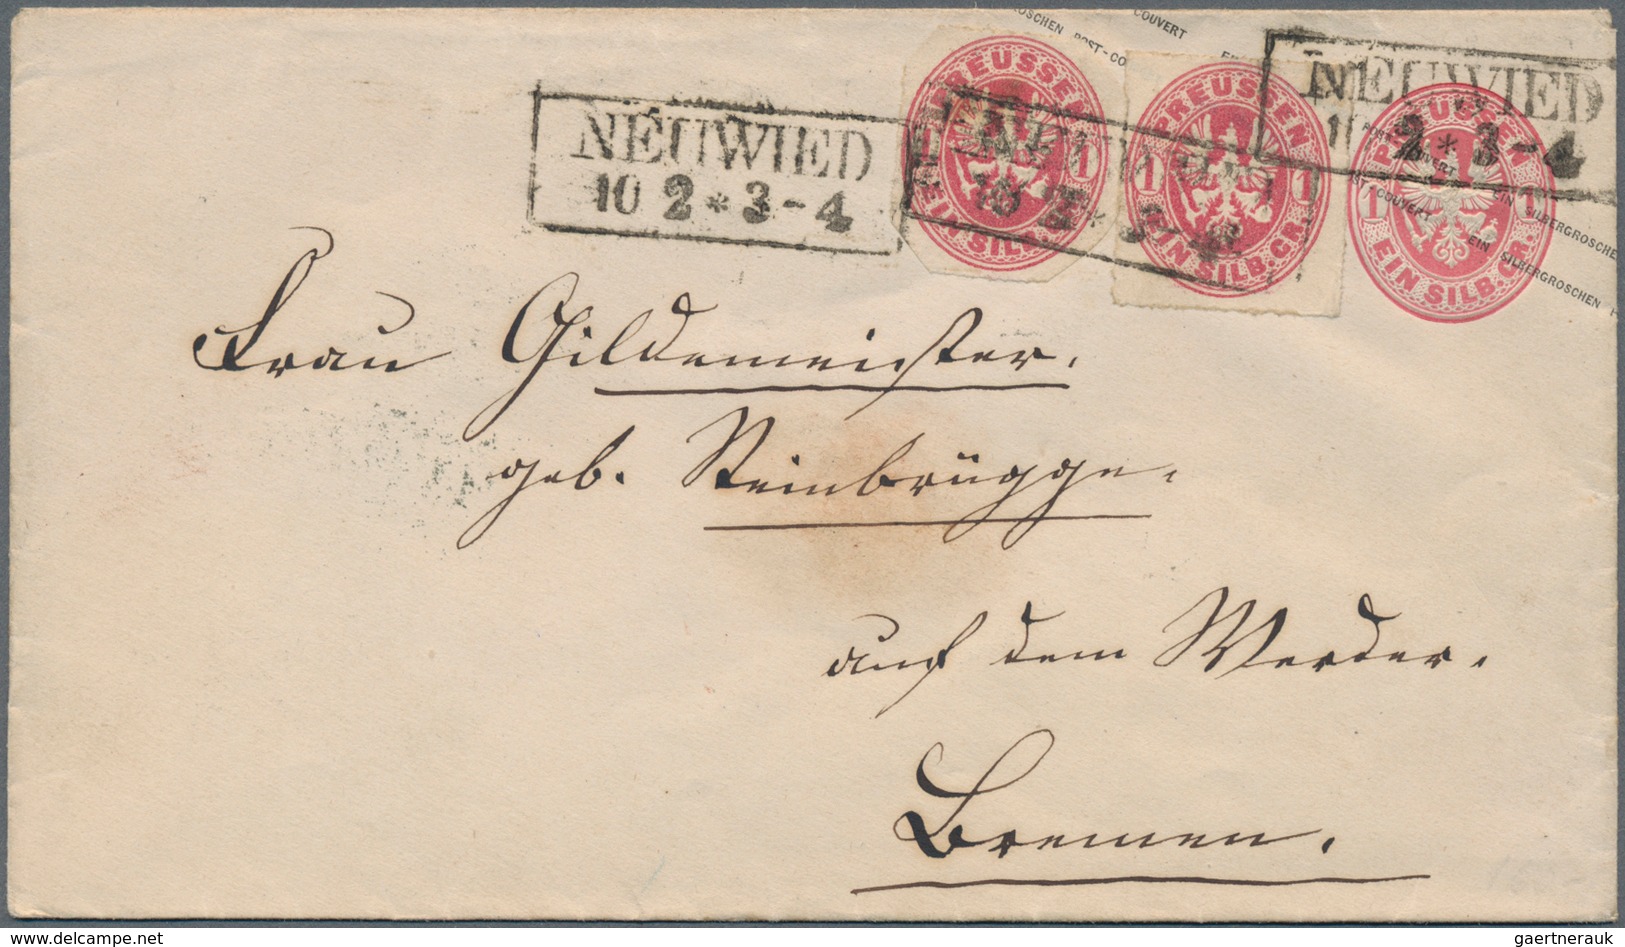 OSCHEN POST-CO
COUVERT
NEUWIED
10 2 * 3-4
PREUSSEN
1 1
EIN SILB.
PREUSSEN
1 1
EIN SILB. GR.
NEUWIED
2 * 3-4
PREUSSEN
1 1
EIN SILB. GR.
POST COUVERT
ST COUVERT EIN SILBERGROSCHE
EIN SILBERGROSCHEN
Frau Gildemeister.
geb. Steinbrügge.
auf dem Werder.
Bremen.
delcampe.net
gaertnerauk